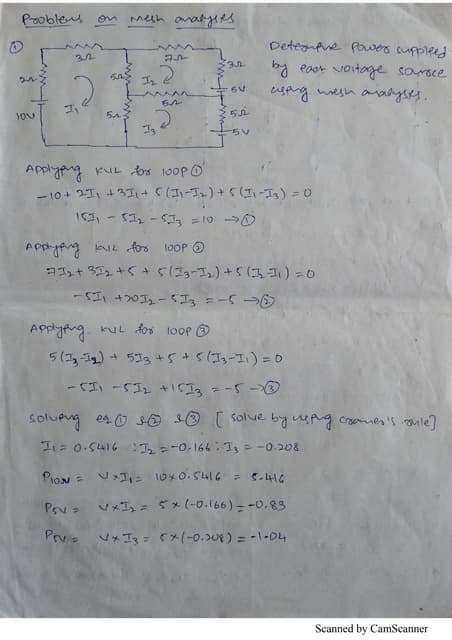 Problems on mesh analysis
①
3Ω
7Ω
2Ω
5Ω
I₂
3Ω
I₁
5Ω
5V
10V
5Ω
I₃
5Ω
5V
Determine power supplied
by each voltage source
using mesh analysis.
Applying KVL for loop ①
-10 + 2I₁ + 3I₁ + 5(I₁-I₂) + 5(I₁-I₃) = 0
15I₁ - 5I₂ - 5I₃ = 10 → ①
Applying KVL for loop ②
7I₂ + 3I₂ + 5 + 5(I₃-I₂) + 5(I₂-I₁) = 0
-5I₁ + 20I₂ - 5I₃ = -5 → ②
Applying KVL for loop ③
5(I₃-I₂) + 5I₃ + 5 + 5(I₃-I₁) = 0
-5I₁ - 5I₂ + 15I₃ = -5 → ③
solving eq ① & ② & ③ [ solve by using cramer's rule]
I₁ = 0.5416 ; I₂ = -0.166 ; I₃ = -0.208
P10V = V×I₁ = 10×0.5416 = 5.416
P5V = V×I₂ = 5×(-0.166) = -0.83
P5V = V×I₃ = 5×(-0.208) = -1.04
Scanned by CamScanner